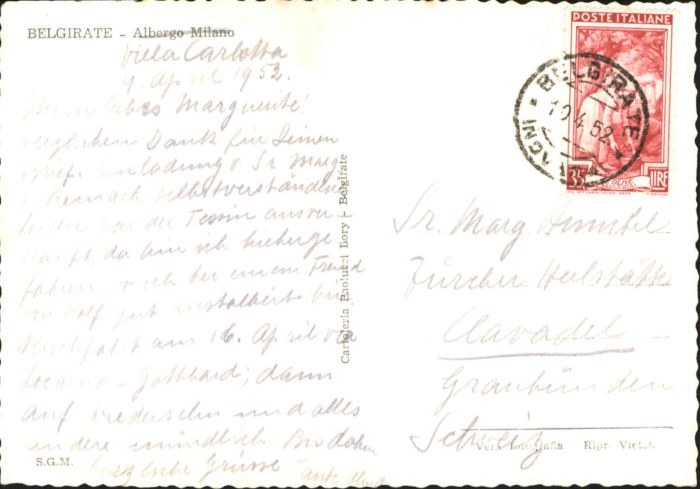 BELGIRATE - Albergo Milano
Villa Carlotta
9. April 1952.
Mein liebes Marguerite!
Herzlichen Dank für Deinen
Brief. Einladung v. Sr. Marg.
selbstverständlich
leider war der Tessin ausver-
kauft, da bin ich hieherge
fahren wo ich bei einem Freund
von Rolf gut installiert bin.
Rückfahrt am 16. April via
Locarno - Gotthard; dann
auf Wiedersehn und alles
andere mündlich
herzliche Grüsse Tante
S.G.M.
Cartoleria Paolucci Lory - Belgirate
POSTE ITALIANE
35 LIRE
BELGIRATE
10.4.52
Sr. Marg. Humbel
Zürcher Heilstätte
Clavadel
Graubünden
Schweiz
Vera fotografia Ripr. Viet.